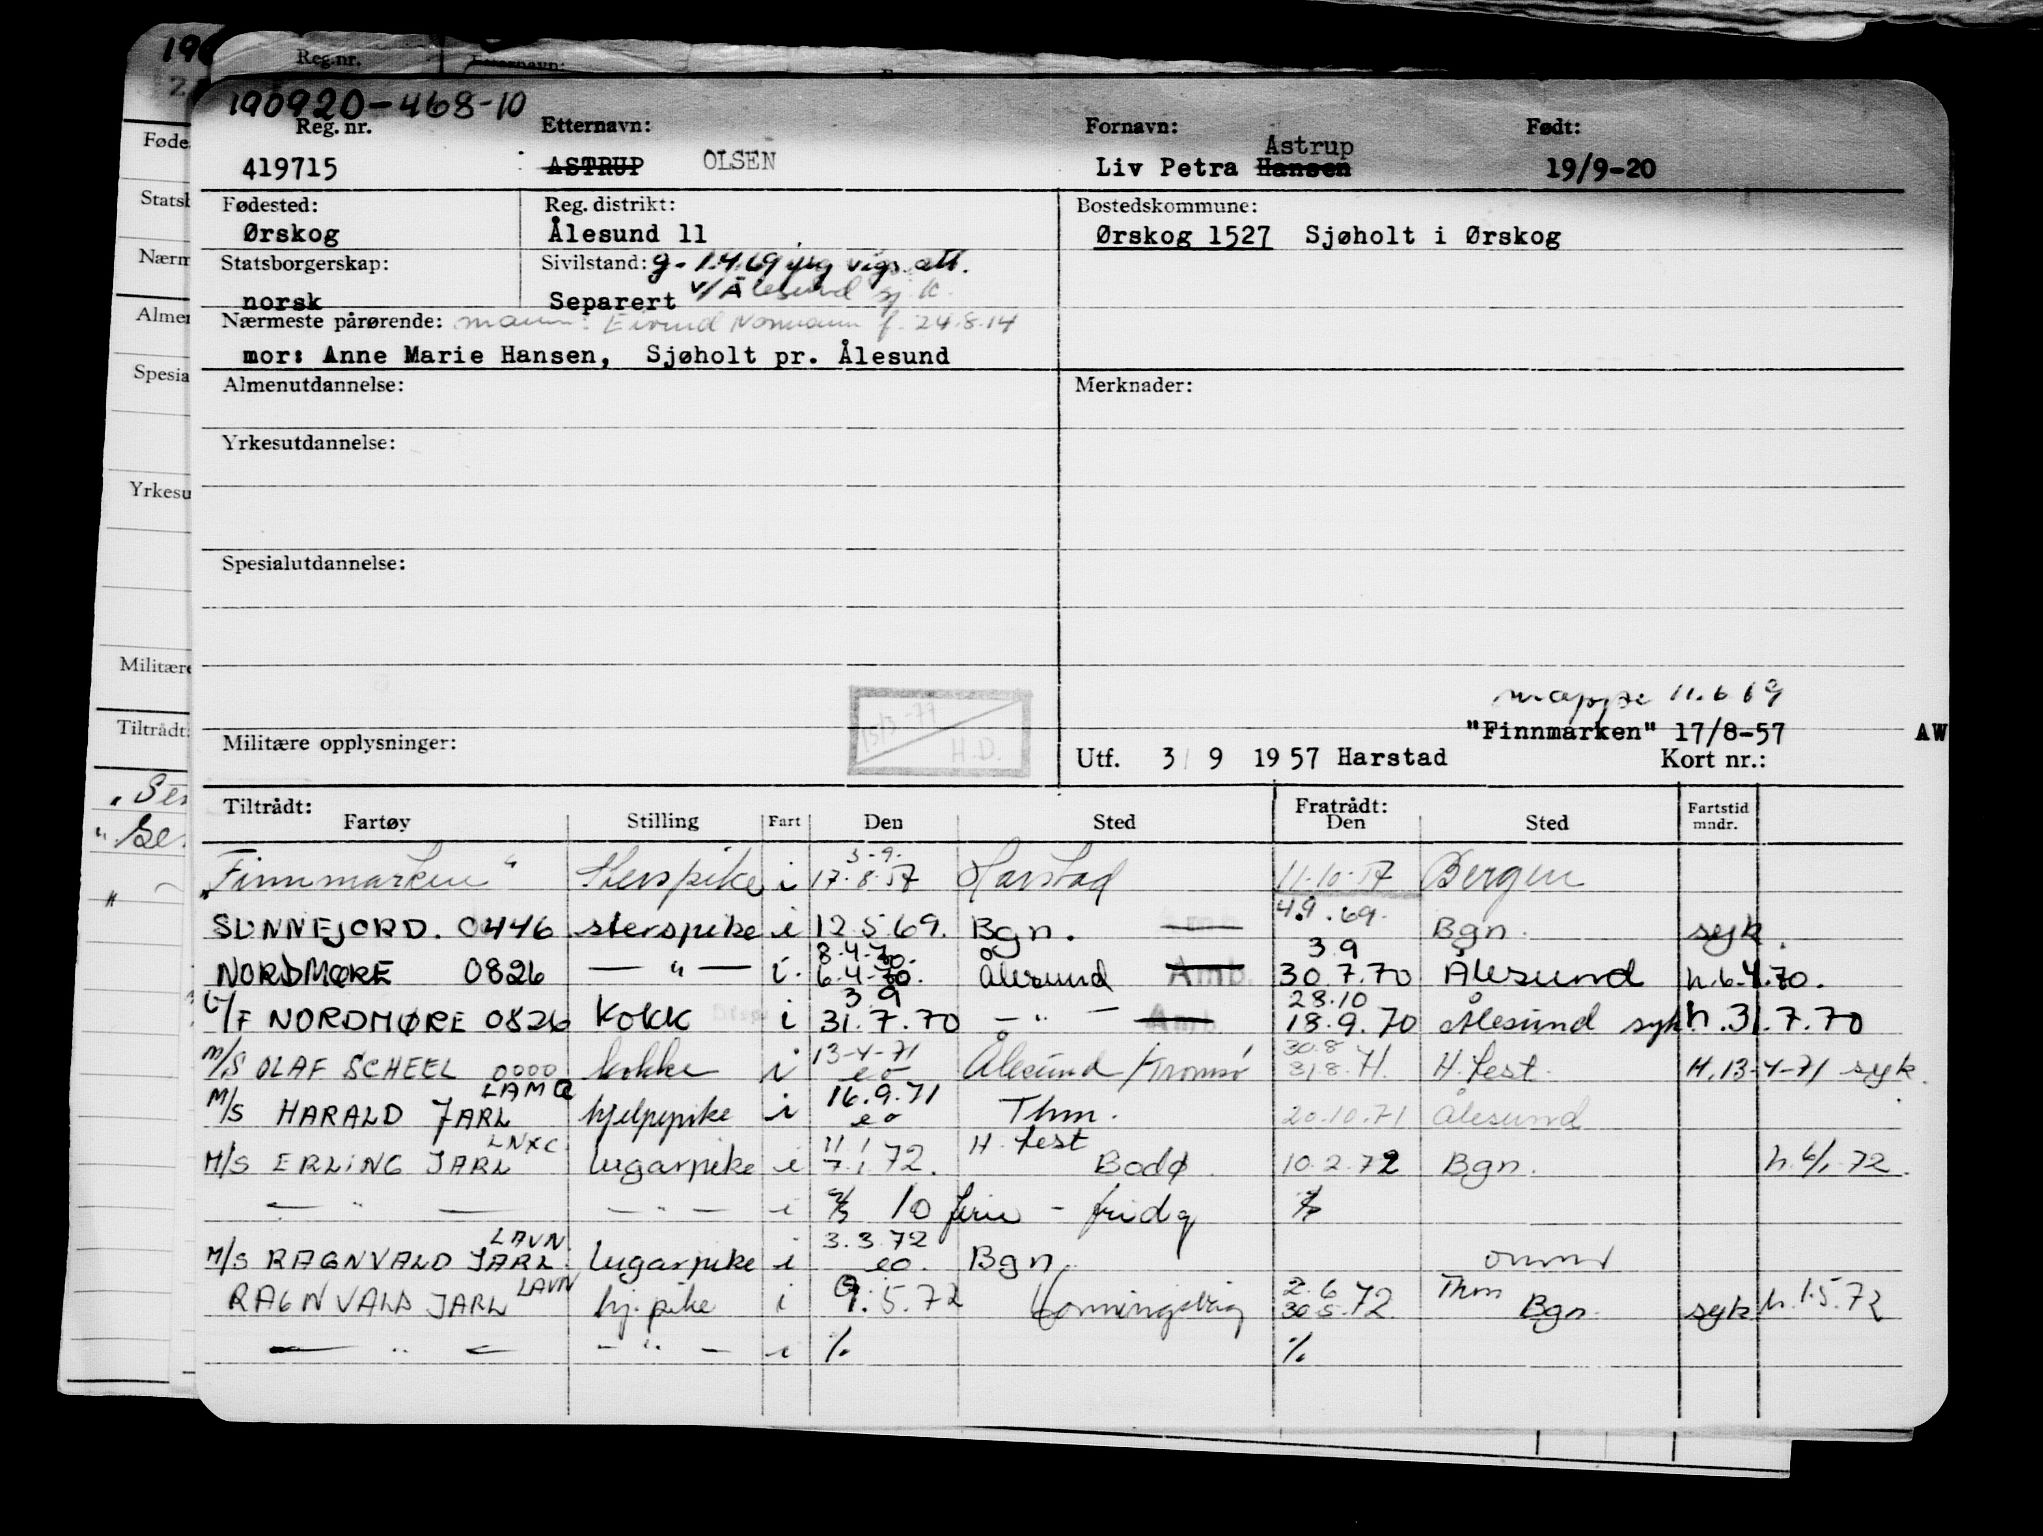 190
Reg.nr.
190920-468-10
Reg. nr. Etternavn: Fornavn: Født:
419715 ASTRUP OLSEN Liv Petra Hansen Astrup 19/9-20
Fødested: Reg. distrikt: Bostedskommune:
Ørskog Ålesund 11 Ørskog 1527 Sjøholt i Ørskog
Statsborgerskap: Sivilstand: g. 1.4.69 vigs. att.
norsk Separert v/Ålesund sj.k.
Nærmeste pårørende: mann: Eivind Normann f. 24.8.14
mor: Anne Marie Hansen, Sjøholt pr. Ålesund
Almenutdannelse: Merknader:
Yrkesutdannelse:
Spesialutdannelse:
mappe 11.6.69
"Finnmarken" 17/8-57 AW
15/3-77
H.D.
Militære opplysninger: Utf. 3/9 1957 Harstad Kort nr.:
Tiltrådt: Fratrådt: Fartstid
Fartøy Stilling Fart Den Sted Den Sted mndr.
3-9.
"Finnmarken" Sterspike i 17.8.57 Harstad 11.10.57 Bergen
4.9.69.
SUNNFJORD. 0446 sterspike i 12.5.69. Bgn. Bgn. syk.
8.4.70. 3.9
NORDMØRE 0826 — " — i. 6.4.70. Ålesund Amb. 30.7.70 Ålesund h.6.4.70.
3.9 28.10
M/F NORDMØRE 0826 Kokk i 31.7.70 — " — Amb. 18.9.70 Ålesund syk h.31.7.70
13-4-71 30.8
M/S OLAF SCHEEL 0000 kokke i eo Ålesund/Tromsø 31.8.71. H.fest. H.13-4-71 syk.
LAMQ 16.9.71
M/S HARALD JARL hjelpepike i eo Thm. 20.10.71 Ålesund
LNXC 11/1 H.fest
M/S ERLING JARL lugarpike i 7.1.72. Bodø 10.2.72 Bgn. h.6/1-72.
— " — — " — i 10 ferie - fridg
LAVN 3.3.72
M/S RAGNVALD JARL lugarpike i eo. Bgn.
LAVN 2.6 Thm
RAGNVALD JARL hj.pike i 9.5.72 Honningsvåg 30.5.72. Bgn. syk h.1.5.72
— " — — " — i % %